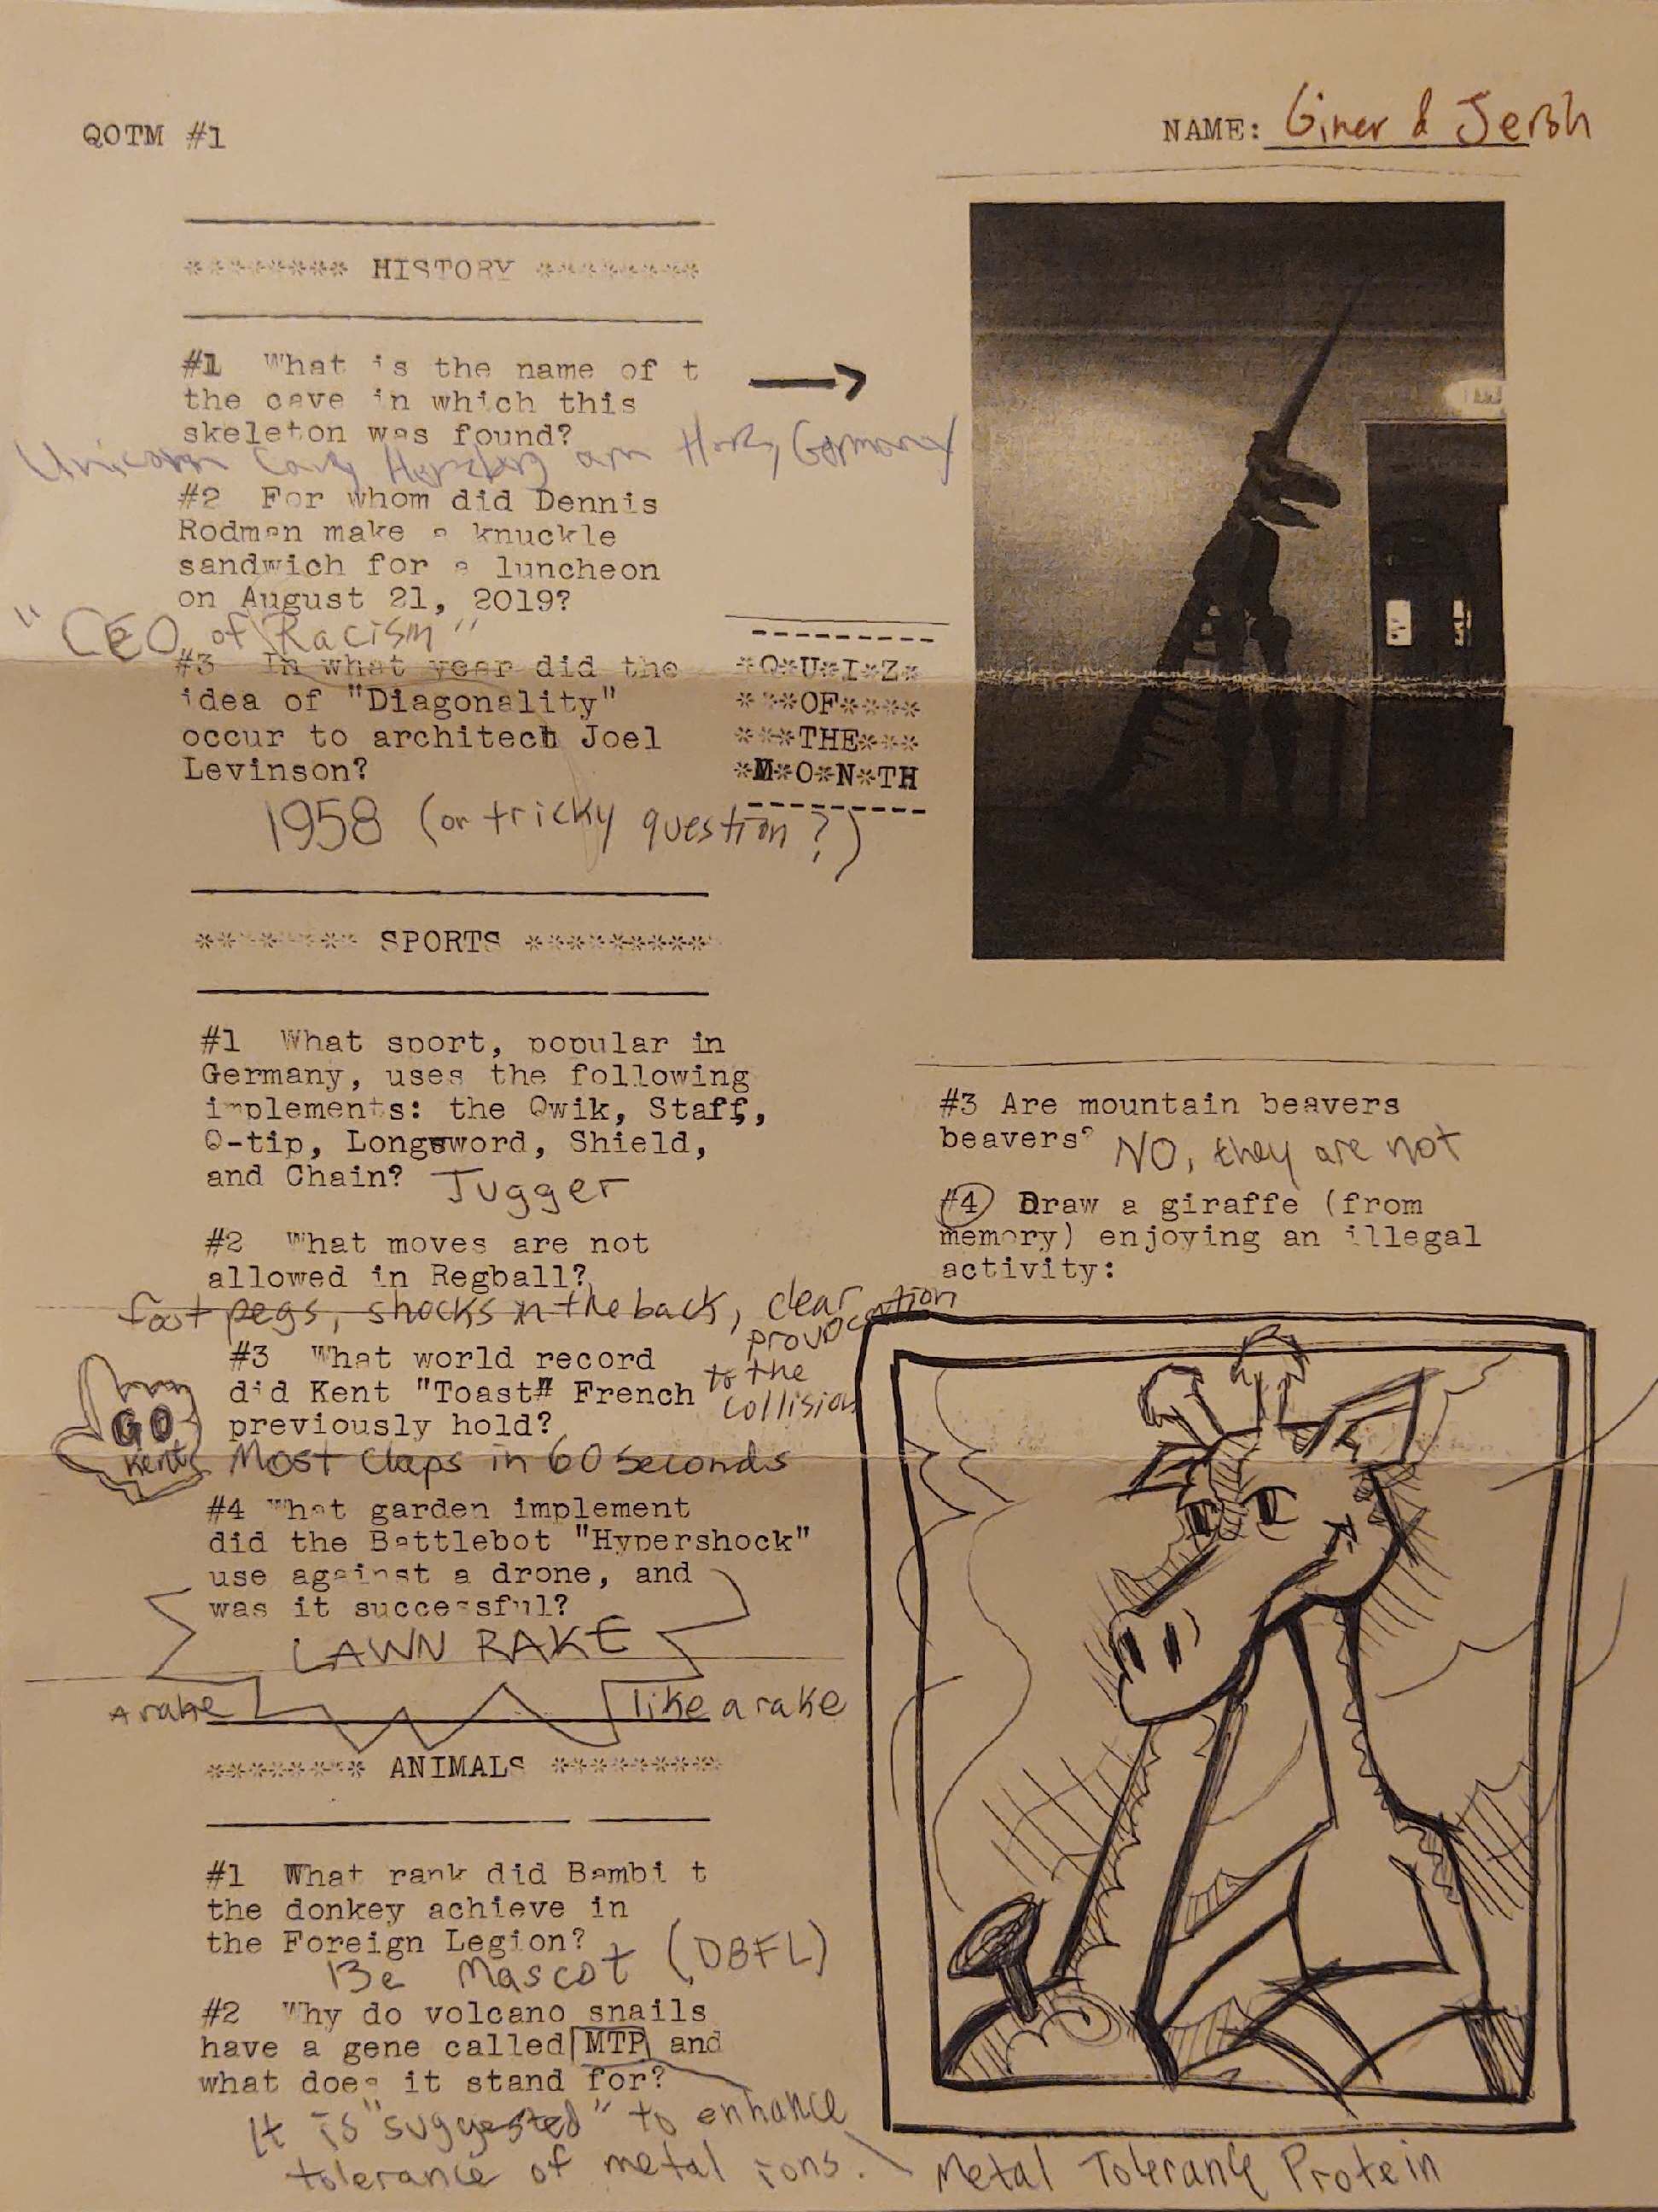 QOTM #1
NAME: Giner & Jersh
******** HISTORY ********
#1 What is the name of t
the cave in which this
skeleton was found?
Unicorn Cave, Herzberg am Harz, Germany
#2 For whom did Dennis
Rodman make a knuckle
sandwich for a luncheon
on August 21, 2019?
"CEO of Racism"
#3 In what year did the
idea of "Diagonality"
occur to architech Joel
Levinson?
1958 (or tricky question?)
*Q*U*I*Z*
***OF****
***THE***
*M*O*N*TH
******** SPORTS *********
#1 What sport, popular in
Germany, uses the following
implements: the Qwik, Staff,
Q-tip, Longsword, Shield,
and Chain? Jugger
#2 What moves are not
allowed in Regball?
foot pegs, shocks in the back, clear
provocation
to the
collision
#3 What world record
did Kent "Toast# French
previously hold?
GO
Kent
Most Claps in 60 Seconds
#4 What garden implement
did the Battlebot "Hypershock"
use against a drone, and
was it successful?
LAWN RAKE
A rake
like a rake
******** ANIMALS ********
#1 What rank did Bambi t
the donkey achieve in
the Foreign Legion?
Be Mascot (DBFL)
#2 Why do volcano snails
have a gene called MTP and
what does it stand for?
It is "suggested" to enhance
tolerance of metal ions.
Metal Tolerance Protein
#3 Are mountain beavers
beavers? NO, they are not
#4 Draw a giraffe (from
memory) enjoying an illegal
activity: